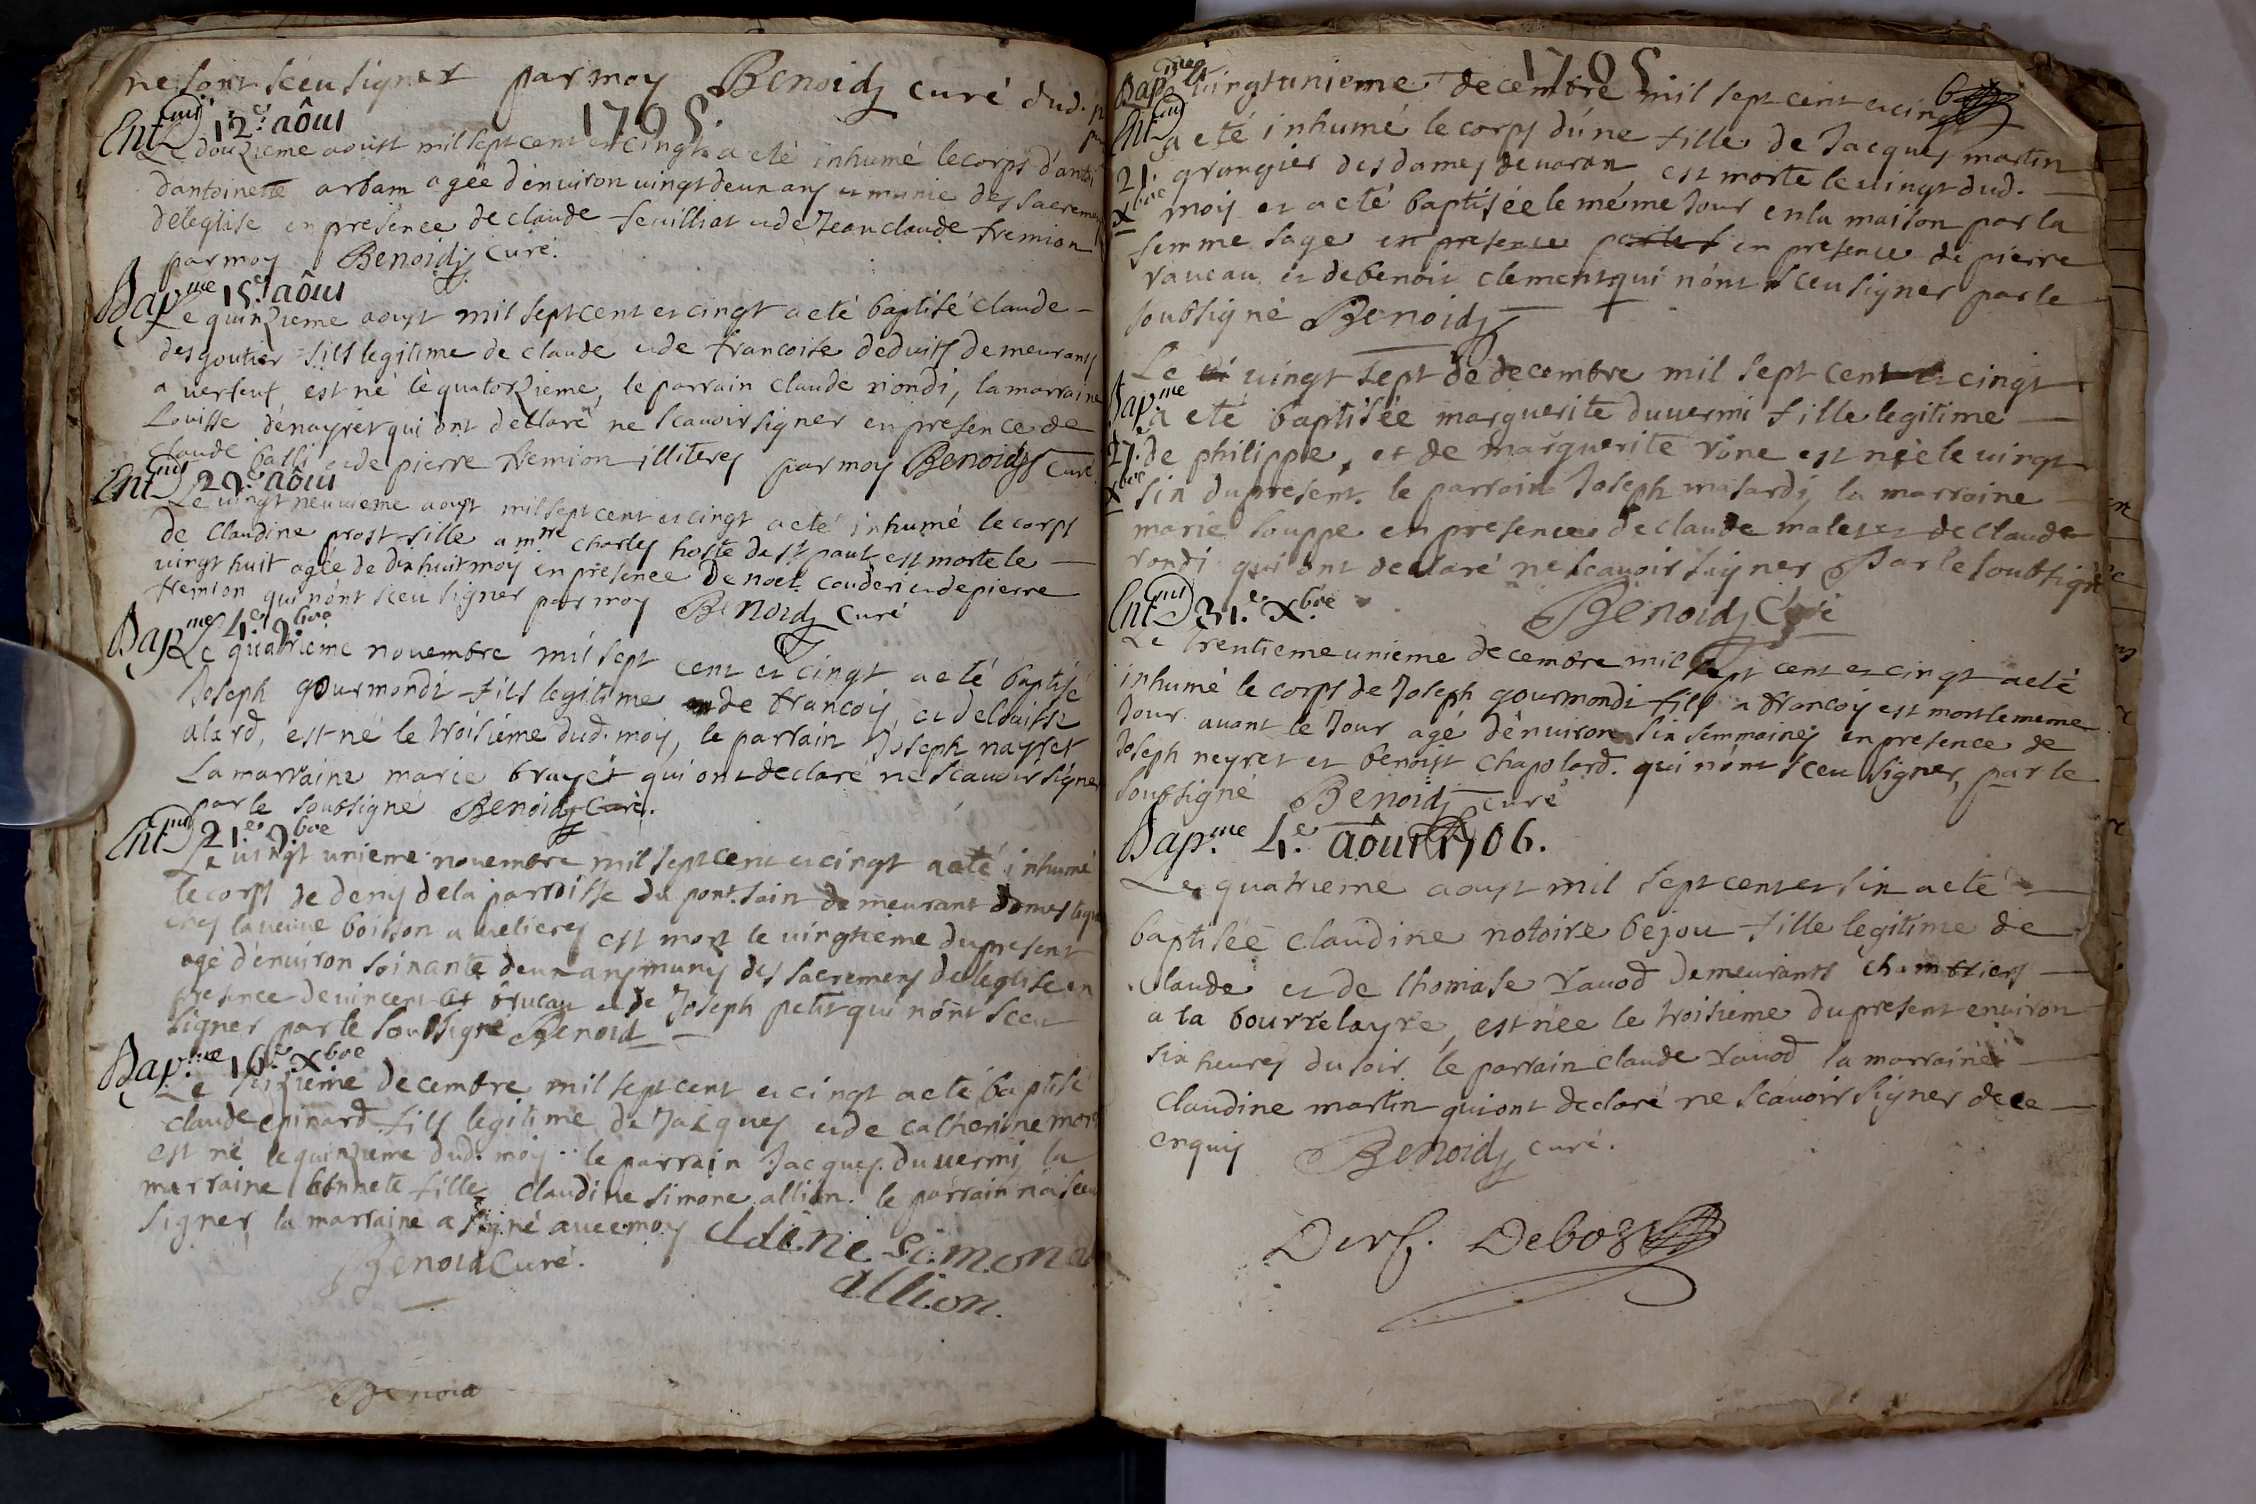 ne sont sceu signer par moy Benoid curé dud.
1705.
Ent 12e. aôut
Le douzieme aoust mil sept cent et cingt a eté inhumé le corps d'antoi
d'antoinette arbam agée d'environ vingt deux ans et munie des sacremens
de leglise en presence de claude feuilliat et de Jean claude fremion
par moy Benoid curé.
Bapme 15e. aôut
Le quinzieme aoust mil sept cent et cingt a eté baptisé claude
desgoutier fils legitime de claude et de francoise deduits demeurants
a verfeut, est né le quatorzieme, le parrain claude riondi, la marraine
Louisse dénayret qui ont declaré ne scavoir signer en presence de
claude balli et de pierre fremion illiteres par moy Benoid curé
Ent 29e. aôut
Le vingt neuvieme aoust mil sept cent et cingt a eté inhumé le corps
de claudine prost fille a mre charles hoste de st paul est morte le
vingt huit agée de dix huit moys en presence de noel couderi et de pierre
fremion qui n'ont sceu signer par moy Benoid curé
Bapme 4e. 9bre
Le quatrieme novembre mil sept cent et cingt a eté baptisé
Joseph gourmondi fils legitime de francois, et de louisse
alard, est né le troisieme dud. mois, le parrain Joseph nayret
La marraine marie brayet qui ont declaré ne scavoir signer
par le soubsigné Benoid curé.
Ent 21e. 9bre
Le vingt unieme novembre mil sept cent et cingt a eté inhumé
le corps de denys de la parroisse du pont. sain demeurant domestique
ches la veuve boisson a velieres est mort le vingtieme du present
agé d'environ soixante deux ans munis des sacremens de leglise en
presence de vincent brueau et de Joseph petit qui n'ont sceu
signer par le soubsigné Benoid
Bapme 16e. Xbre
Le seizieme decembre mil sept cent et cingt a eté baptisé
claude epinard fils legitime de Jacques et de catherine mor
est né le quinzieme dud. moy.. le parrain Jacques duvermi, la
marraine honnete fille claudine simone allion. le parrain n'a sceu
signer, la marraine a signé avec moy cldine simone
Benoid Curé. allion.
Benoid
1705
6
Bapme Le vingt unieme decembre mil sept cent et cingt
Ent a eté inhumé le corps d'une fille de Jacques martin
21. grangier des dames de varan, est morte le vingt dud.
Xbre mois et a eté baptisée le méme Jour en la maison par la
femme sage en presence en presence de pierre
raveau et de benoit clement qui n'ont sceu signer par le
soubsigné Benoid
Le vingt sept de decembre mil sept cent et cingt
Bapme a eté baptisée marguerite duvermi fille legitime
27. de philippe, et de marguerite rône est née le vingt
Xbre six du present. le parrain Joseph masardi, la marraine
marie souppe en presence de claude males et de claude
rondi qui ont declaré ne scavoir signer Par le soubsigné
Ent 31e. Xbre Benoid Curé
Le trentieme unieme decembre mil sept cent et cingt a eté
inhumé le corps de Joseph gourmondi fils a francois est mort le meme
Jour avant le Jour agé d'environ six semmaines en presence de
Joseph neyret et benoist chapolard. qui n'ont sceu signer, par le
soubsigné Benoid curé
Bapme. 4e. aôut 1706.
Le quatrieme aoust mil sept cent et six a eté
baptisée claudine notoire bejou fille legitime de
claude et de thomase ravod demeurants chambriers
a la bourrelayre, est née le troisieme du present environ
six heures du soir le parrain claude ravod la marraine
claudine martin qui ont declaré ne scavoir signer de ce
enquis Benoid curé.